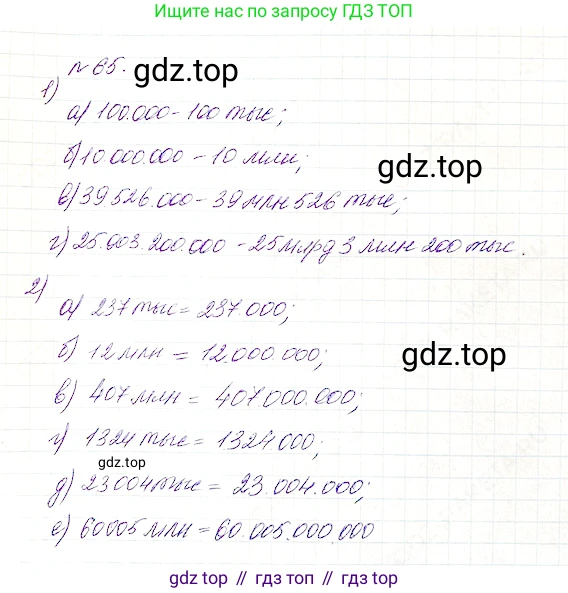 Ищите нас по запросу ГДЗ ТОП
№ 65.
gdz.top
1)
а) 100.000 - 100 тыс;
б) 10.000.000 - 10 млн;
gdz.top
в) 39 526.000 - 39 млн 526 тыс;
г) 25.003.200.000 - 25 млрд 3 млн 200 тыс.
2)
а) 237 тыс = 237.000;
б) 12 млн = 12.000.000;
gdz.top
в) 407 млн = 407 000.000;
г) 1324 тыс = 1324 000;
gdz.top
д) 23 004 тыс = 23.004.000;
е) 60005 млн = 60.005.000.000
gdz top // гдз топ // gdz.top